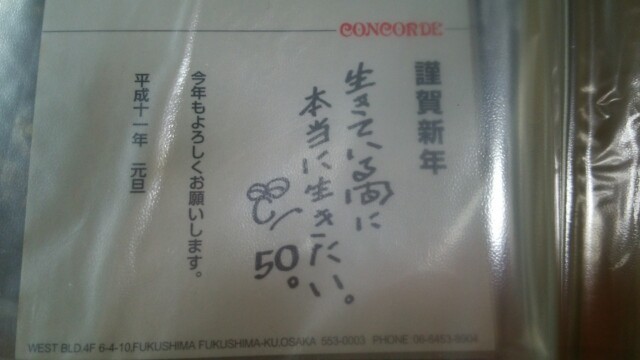 CONCORDE
謹賀新年
生きている間に
本当に生きたい。
50。
今年もよろしくお願いします。
平成十一年 元旦
WEST BLD.4F 6-4-10,FUKUSHIMA FUKUSHIMA-KU,OSAKA 553-0003 PHONE 06-6453-8904